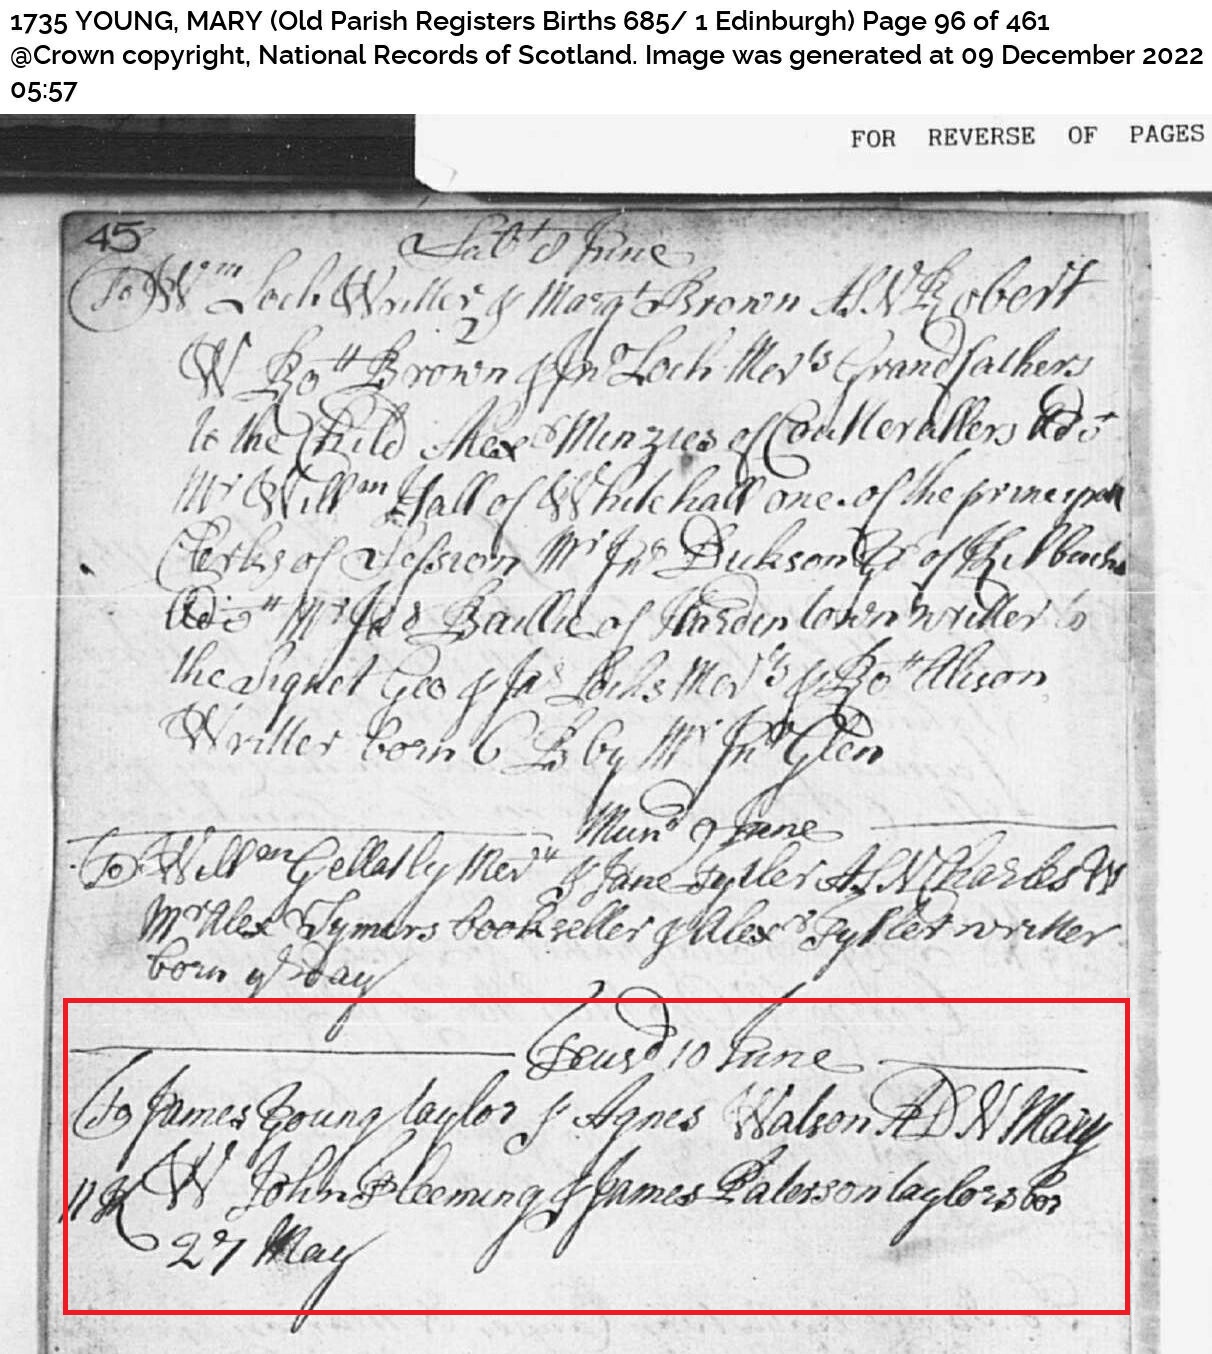 1735 YOUNG, MARY (Old Parish Registers Births 685/ 1 Edinburgh) Page 96 of 461
@Crown copyright, National Records of Scotland. Image was generated at 09 December 2022
05:57
FOR REVERSE OF PAGES
45
Sabt 8 June
To Wm Loch Writter & Margt Brown A.S.N Robert
W Rott Brown & Jno Loch Merts Grandfathers
to the Child Alexr Menzies of Coulterallers
Mr Willam Hall of Whitehall one of the principall
Clerks of Session Mr Jno Dickson of Kilbucho
Mr Jas Baillie of Hardentown writter to
the Signet Geo & Jas Lochs Merts & Rott Alison
Writter born 6 B by Mr Jno Glen
Mund 9 June
To Willam Gellatly Mert & Jane Tytler A.S.N Charles W
Mr Alexr Symers bookseller & Alexr Tytler writter
born yr day
Teusd 10 June
To James Young taylor & Agnes Watson A D N Mary
W John Fleeming & James Paterson taylors bor
27 May